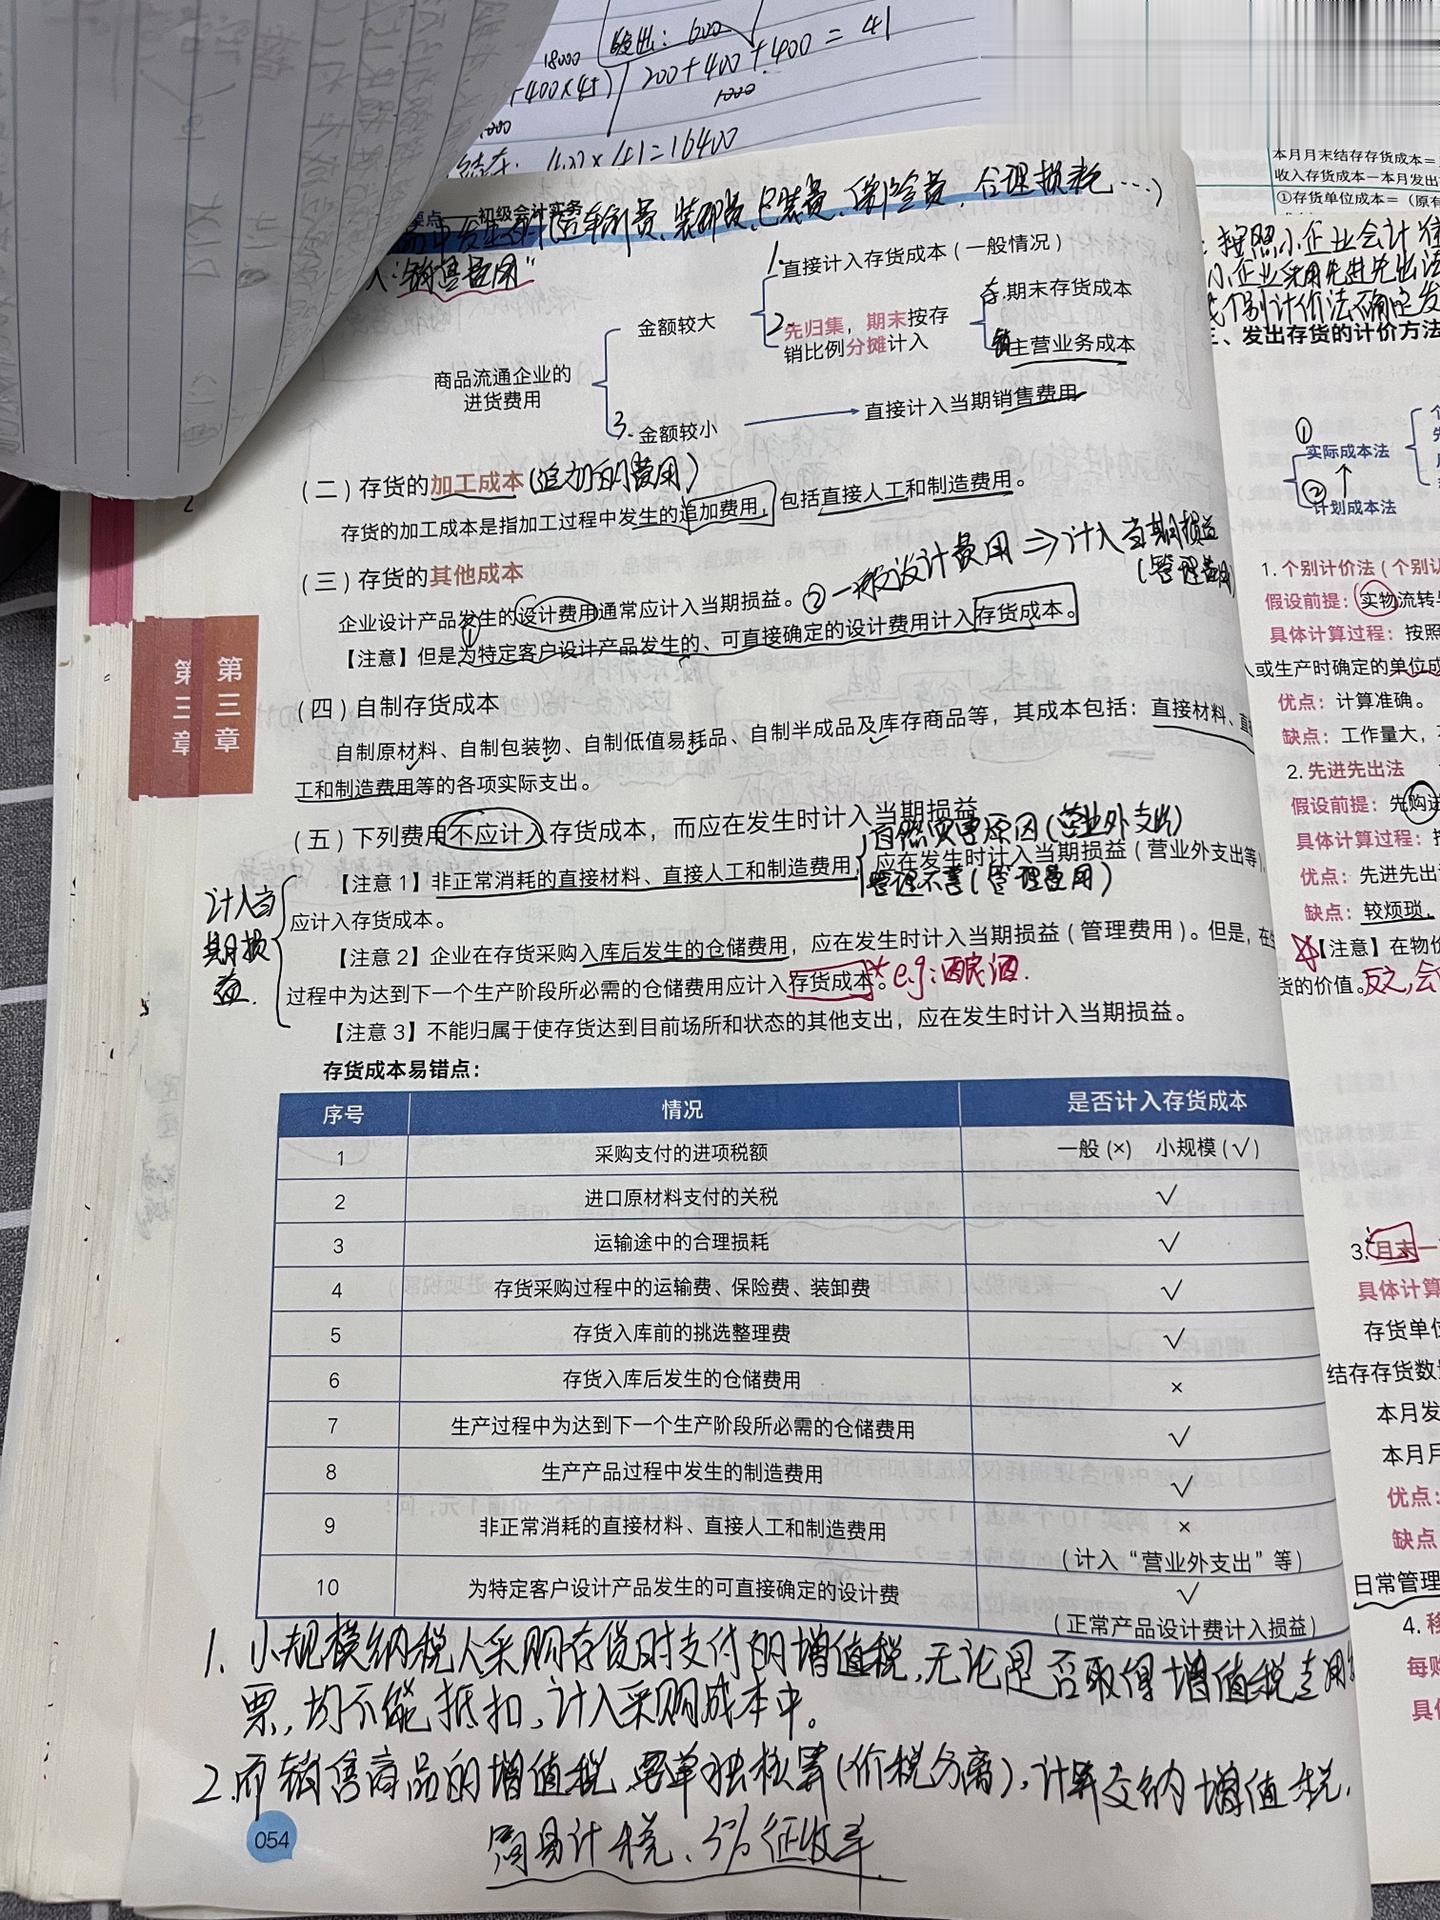 18000
发出：600
+400×45)
200+400+400 = 41
1000
400×41=16400
初级会计实务
费、装卸费、包装费、保险费、合理损耗…)
入“销售费用”
1.直接计入存货成本（一般情况）
金额较大
2.先归集，期末按存
销比例分摊计入
存.期末存货成本
销主营业务成本
商品流通企业的
进货费用
3.金额较小
直接计入当期销售费用
（二）存货的加工成本(追加的费用)
存货的加工成本是指加工过程中发生的追加费用，包括直接人工和制造费用。
（三）存货的其他成本
②一般设计费用⇒计入当期损益
(管理费用)
企业设计产品发生的设计费用通常应计入当期损益。
①
【注意】但是为特定客户设计产品发生的、可直接确定的设计费用计入存货成本。
（四）自制存货成本
自制原材料、自制包装物、自制低值易耗品、自制半成品及库存商品等，其成本包括：直接材料、直
工和制造费用等的各项实际支出。
（五）下列费用不应计入存货成本，而应在发生时计入当期损益
自然灾害原因(营业外支出)
【注意1】非正常消耗的直接材料、直接人工和制造费用，应在发生时计入当期损益（营业外支出等），
管理不善(管理费用)
应计入存货成本。
计入当
期损
益.
【注意2】企业在存货采购入库后发生的仓储费用，应在发生时计入当期损益（管理费用）。但是，在
过程中为达到下一个生产阶段所必需的仓储费用应计入存货成本。*eg:酿酒.
【注意3】不能归属于使存货达到目前场所和状态的其他支出，应在发生时计入当期损益。
存货成本易错点：
序号 情况 是否计入存货成本
1 采购支付的进项税额 一般(×) 小规模(√)
2 进口原材料支付的关税 √
3 运输途中的合理损耗 √
4 存货采购过程中的运输费、保险费、装卸费 √
5 存货入库前的挑选整理费 √
6 存货入库后发生的仓储费用 ×
7 生产过程中为达到下一个生产阶段所必需的仓储费用 √
8 生产产品过程中发生的制造费用 √
9 非正常消耗的直接材料、直接人工和制造费用 ×
（计入“营业外支出”等）
10 为特定客户设计产品发生的可直接确定的设计费 √
（正常产品设计费计入损益）
1. 小规模纳税人采购存货时支付的增值税,无论是否取得增值税专用
票,均不能抵扣,计入采购成本中。
2.而销售商品的增值税,要单独核算(价税分离),计算交纳增值税,
简易计税、3%征收率.
054
第三章
第三章
本月月末结存存货成本＝
收入存货成本－本月发出
①存货单位成本＝（原有
：按照小企业会计准
小企业采用先进先出法
个别计价法确定发
三、发出存货的计价方法
①
实际成本法
②
计划成本法
1. 个别计价法（个别认
假设前提：实物流转与
具体计算过程：按照
入或生产时确定的单位成
优点：计算准确。
缺点：工作量大，
2. 先进先出法
假设前提：先购进
具体计算过程：
优点：先进先出
缺点：较烦琐，
【注意】在物价
货的价值。反之,会
3. 月末一
具体计算
存货单位
结存存货数量
本月发
本月月
优点：
缺点
日常管理
4. 移
每购
具体